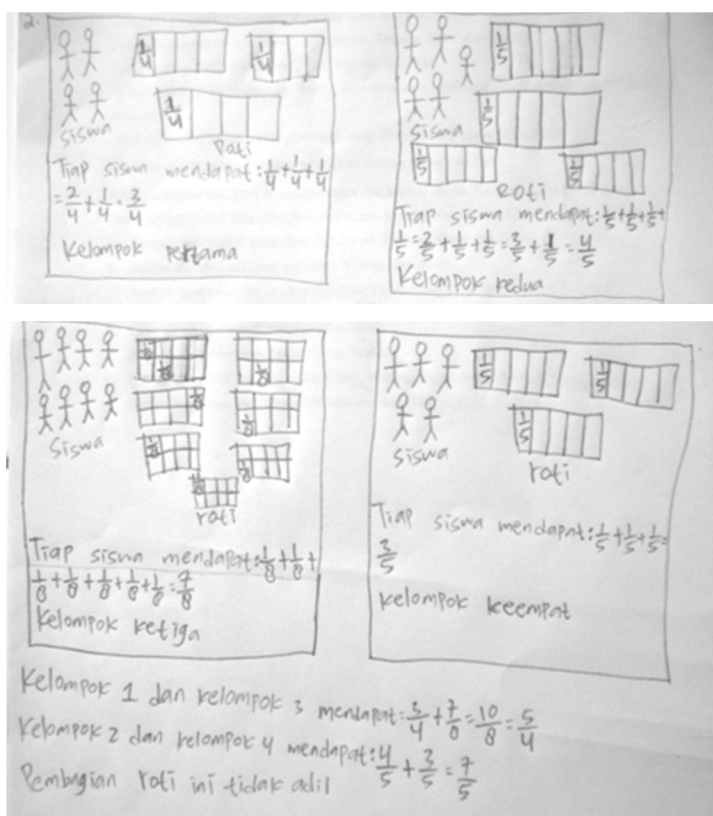 2.
1/4 1/4
1/4
siswa
Roti
Tiap siswa mendapat: 1/4 + 1/4 + 1/4
= 2/4 + 1/4 = 3/4
Kelompok pertama
1/5
1/5
siswa
1/5 1/5
ROti
Tiap siswa mendapat: 1/5 + 1/5 + 1/5 +
1/5 = 2/5 + 1/5 + 1/5 = 3/5 + 1/5 = 4/5
Kelompok kedua
1/8 1/8
1/8 1/8
1/8 1/8
siswa
1/8
roti
Tiap siswa mendapat: 1/8 + 1/8 +
1/8 + 1/8 + 1/8 + 1/8 + 1/8 = 7/8
Kelompok ketiga
1/5 1/5
1/5
siswa
roti
Tiap siswa mendapat: 1/5 + 1/5 + 1/5 =
3/5
Kelompok keempat
Kelompok 1 dan kelompok 3 mendapat: 3/4 + 7/8 = 10/8 = 5/4
Kelompok 2 dan kelompok 4 mendapat: 4/5 + 3/5 = 7/5
Pembagian roti ini tidak adil